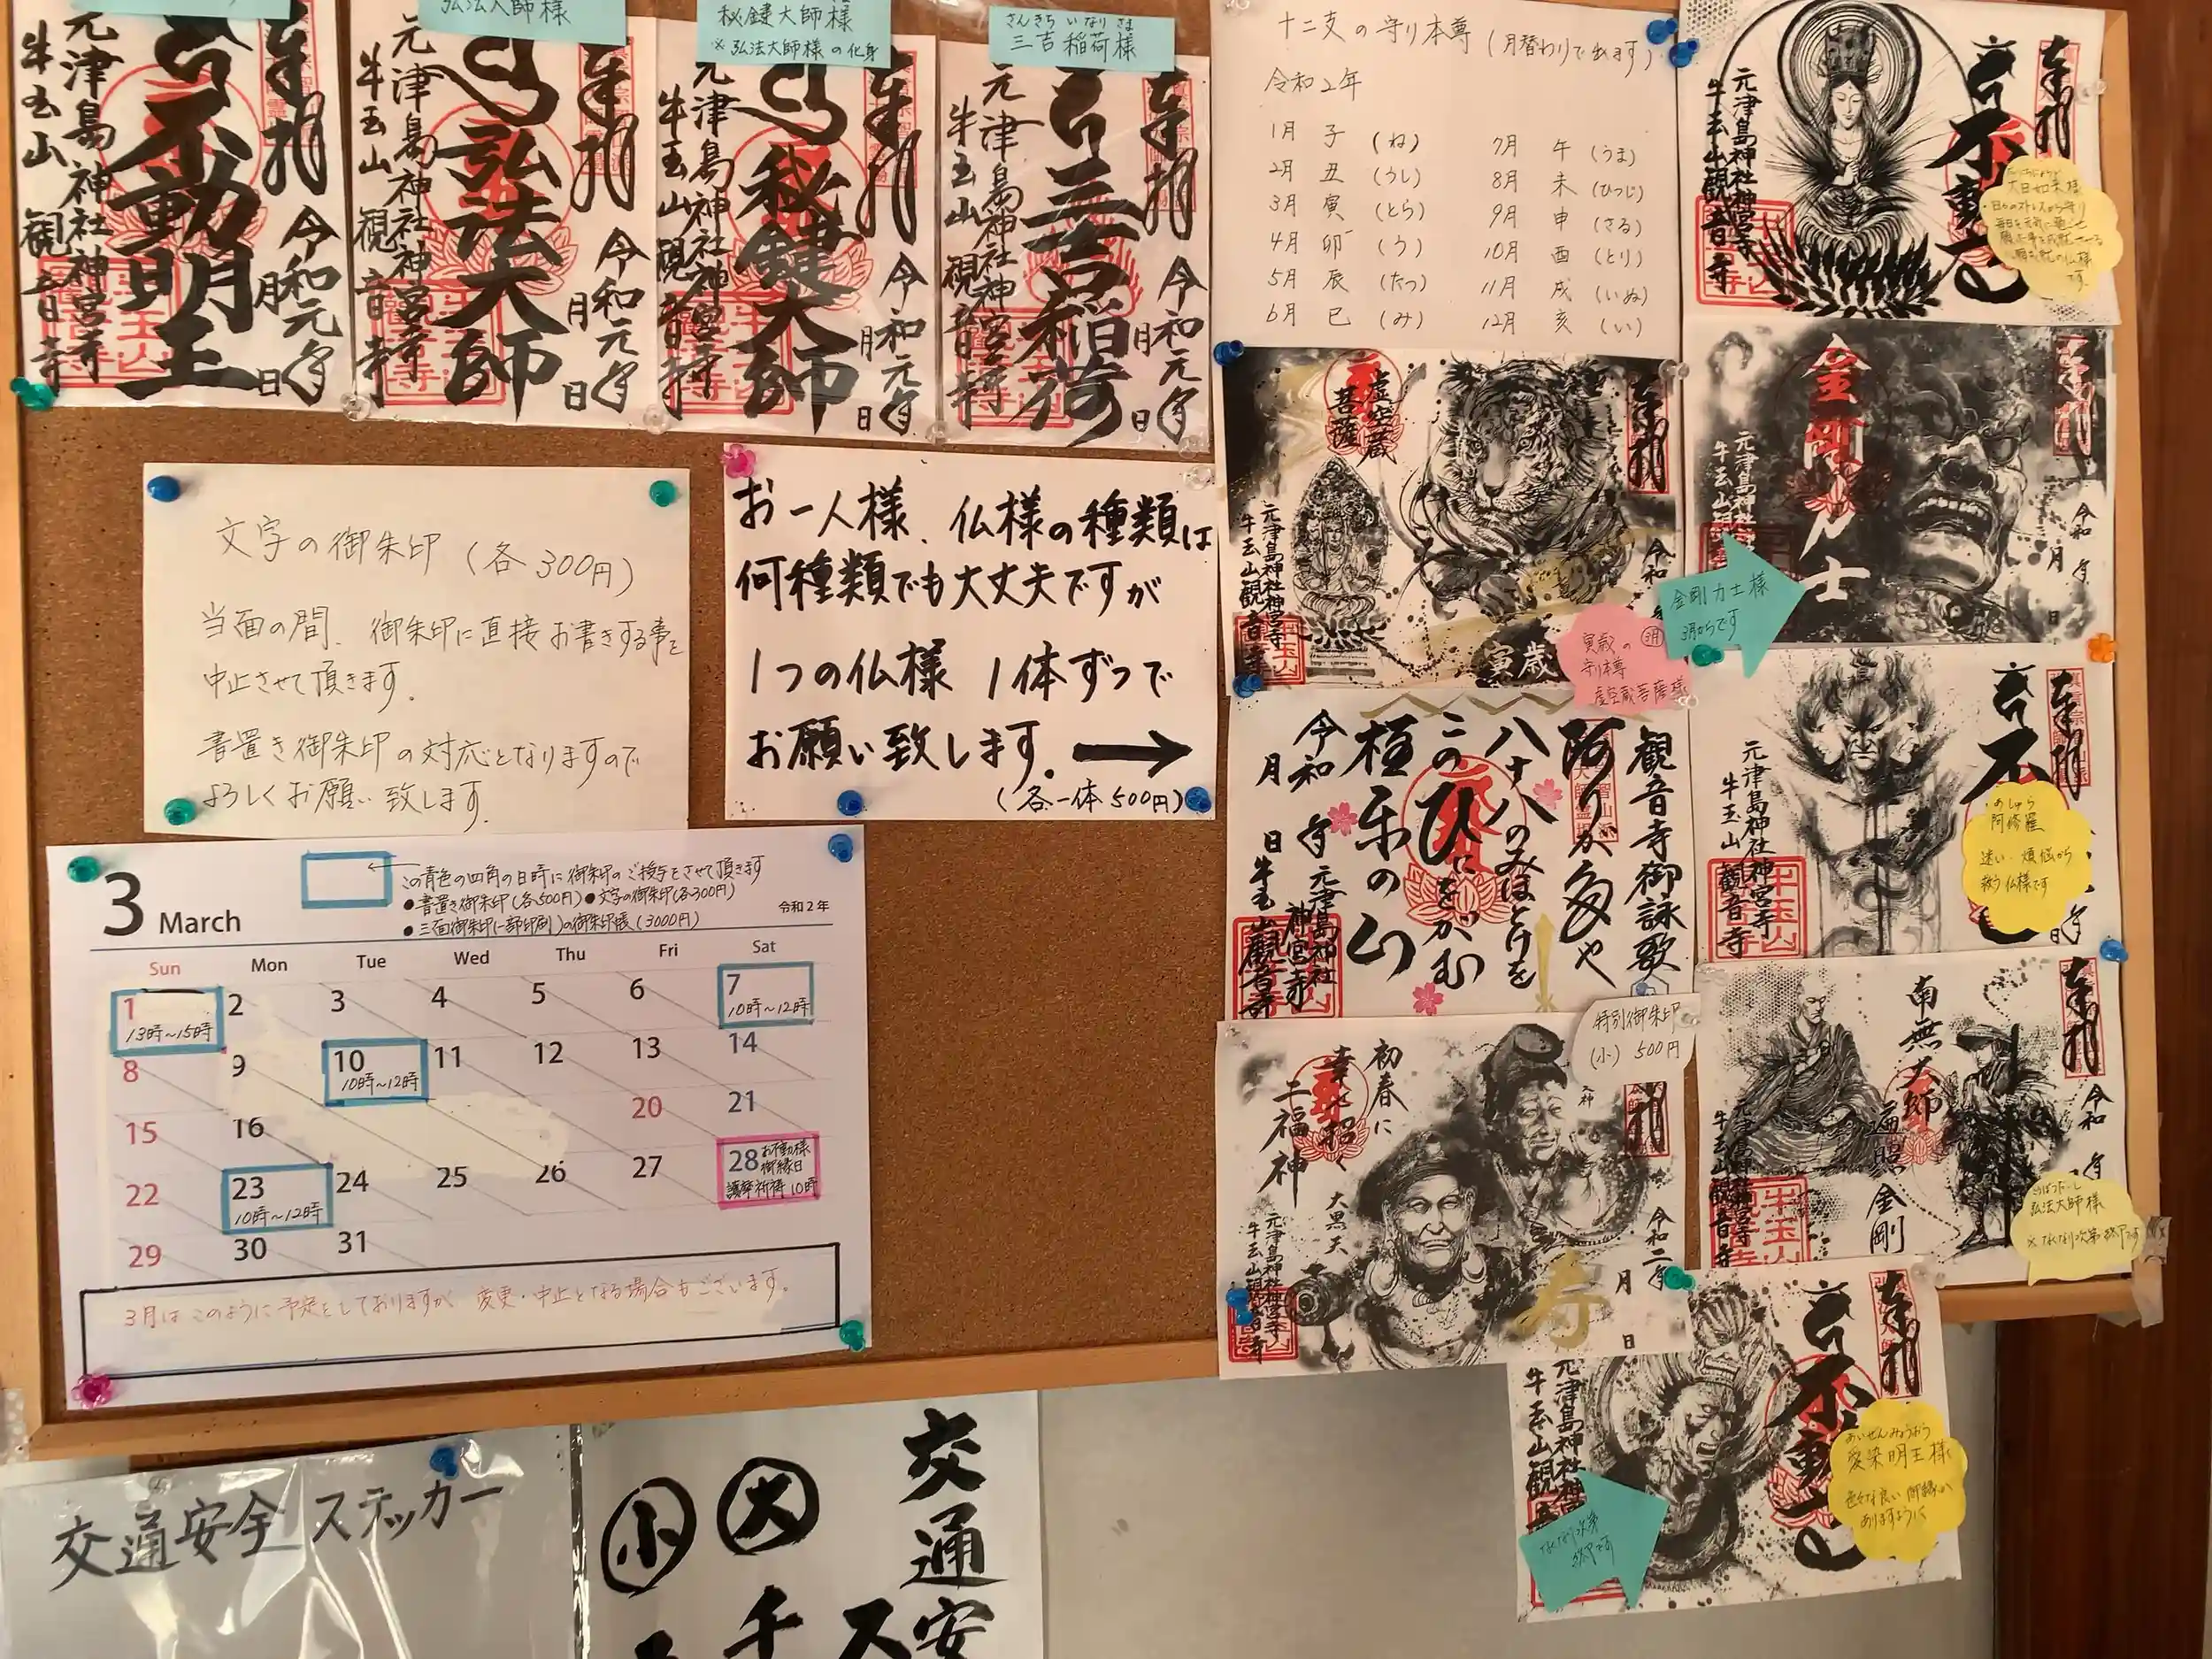 奉拝
不動明王
令和元年
月
日
元津島神社神宮寺
牛玉山 観音寺
弘法大師様
奉拝
弘法大師
令和元年
月
日
元津島神社神宮寺
牛玉山 観音寺
秘鍵大師様
※弘法大師様の化身
奉拝
秘鍵大師
令和元年
月
日
元津島神社神宮寺
牛玉山 観音寺
さんきち いなり さま
三吉稲荷様
奉拝
三吉稲荷
令和元年
月
日
元津島神社神宮寺
牛玉山 観音寺
文字の御朱印(各300円)
当面の間、御朱印に直接お書きする事を
中止させて頂きます。
書置き御朱印の対応となりますので
よろしくお願い致します。
お一人様、仏様の種類は
何種類でも大丈夫ですが
1つの仏様 1体ずつで
お願い致します。→
(各一体500円)
3 March
この青色の四角の日時に御朱印のご授与をさせて頂きます
●書置き御朱印(各500円)●文字の御朱印(各300円)
●三面御朱印(一部印刷)の御朱印帳(3000円)
令和2年
Sun Mon Tue Wed Thu Fri Sat
1 2 3 4 5 6 7
13時~15時 10時~12時
8 9 10 11 12 13 14
10時~12時
15 16 20 21
22 23 24 25 26 27 28
10時~12時
お不動様
御縁日
護摩祈祷 10時
29 30 31
3月はこのように予定をしておりますが 変更・中止となる場合もございます。
交通安全ステッカー
交通安
大
小
十二支の守り本尊(月替わりで出ます)
令和2年
1月 子 (ね)
2月 丑 (うし)
3月 寅 (とら)
4月 卯 (う)
5月 辰 (たつ)
6月 巳 (み)
7月 午 (うま)
8月 未 (ひつじ)
9月 申 (さる)
10月 酉 (とり)
11月 戌 (いぬ)
12月 亥 (い)
奉拝
虚空蔵
菩薩
令和
元津島神社神宮寺
牛玉山観音寺
寅歳
3月
寅歳の
守り本尊
虚空蔵菩薩様
観音寺御詠歌
阿りが多や
八十八のみほとけを
このひにをがむ
極楽の山
令和 年
月 日
元津島神社
神宮寺
牛玉山観音寺
特別御朱印
(小) 500円
初春に
幸せ招く
二福神
大黒天
令和二年
月
日
元津島神社神宮寺
牛玉山観音寺
寿
奉拝
元津島神社神宮寺
牛玉山観音寺
大日如来様
奉拝
金剛力士
令和 年
月
日
元津島神社神
牛玉山
金剛力士様
3月からです
奉拝
元津島神社神宮寺
牛玉山 観音寺
あしゅら
阿修羅
迷い・煩悩から
救う仏様です
奉拝
南無大師
遍照
金剛
令和 年
元津島神社神宮寺
牛玉山 観音寺
弘法大師様
※なくなり次第終了です
奉拝
不動
元津島神社神
牛玉山観
あいぜんみょうおう
愛染明王様
色々な良い御縁が
ありますように
なくなり次第
終了です